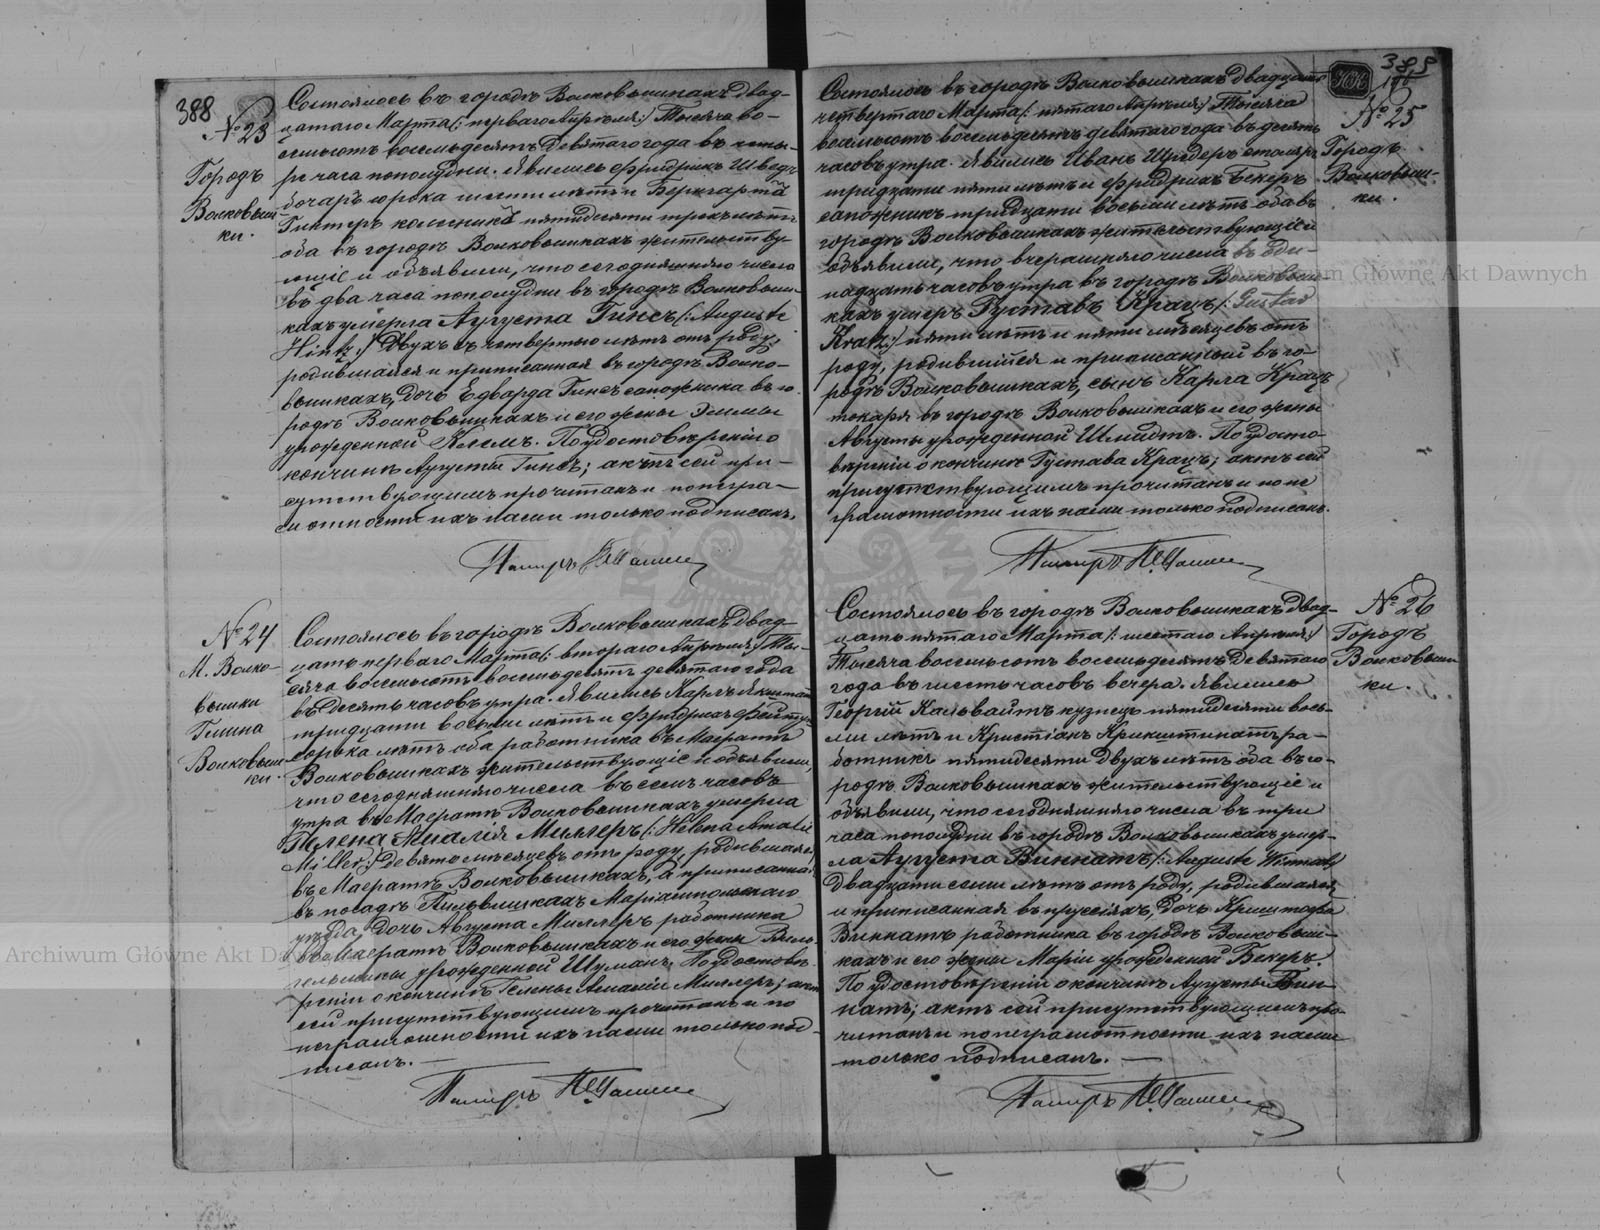 388
№ 23
Городъ
Волковыш-
ки.
Состоялось въ городѣ Волковышкахъ двад-
цатаго Марта /: перваго Апрѣля :/ Тысяча во-
семьсотъ восемьдесятъ девятаго года въ четы-
ре часа пополудни. Явились Фридрихъ Шведъ
бочаръ сорока шести лѣтъ и
Гинтеръ колесника пятидесяти трехъ лѣтъ
оба въ городѣ Волковышкахъ жительству-
ющіе и объявили, что сегодняшняго числа
въ два часа пополудни въ городѣ Волковыш-
кахъ умерла Августа Гинсъ /: Auguste
Hintz :/ двухъ съ четвертью лѣтъ отъ роду,
родившаяся и приписанная въ городѣ Волко-
вышкахъ, дочь Едварда Гинсъ сапожника въ го
родѣ Волковышкахъ и его жены Эммы
урожденной Клемъ. По удостовѣренію
кончинѣ Августы Гинсъ; актъ сей при-
сутствующимъ прочитанъ и по негра-
мотности ихъ нами только подписанъ.
№ 24
М. Волко-
вышки
Гмина
Волковыш-
ки.
Состоялось въ городѣ Волковышкахъ двад-
цать перваго Марта /: втораго Апрѣля :/ Ты-
сяча восемьсотъ восемьдесятъ девятаго года
въ десять часовъ утра. Явились Карлъ
тридцати восьми лѣтъ и Фридрихъ
сорока лѣтъ оба работника въ Маератѣ
Волковышкахъ жительствующіе и объявили,
что сегодняшняго числа въ семь часовъ
утра въ Маератѣ Волковышкахъ умерла
Гелена Амалія Миллеръ /: Helena Amalie
Miller :/ девять мѣсяцевъ отъ роду, родившаяся
въ Маератѣ Волковышкахъ, а приписанная
въ посадѣ Пильвишкахъ Маріампольскаго
уѣзда, дочь Августа Миллеръ работника
въ Маератѣ Волковышкахъ и его жены Виль-
гельмины урожденной Шуманъ. По удостовѣ-
реніи о кончинѣ Гелены Амаліи Миллеръ; актъ
сей присутствующимъ прочитанъ и по
неграмотности ихъ нами только под-
писанъ. —
385
№ 25
Городъ
Волковыш-
ки.
Состоялось въ городѣ Волковышкахъ двадцать
четвертаго Марта /: пятаго Апрѣля :/ Тысяча
восемьсотъ восемьдесятъ девятаго года въ десять
часовъ утра. Явились Иванъ Шредеръ столяръ
тридцати пяти лѣтъ и Фридрихъ Бекеръ
сапожникъ тридцати восьми лѣтъ оба въ
городѣ Волковышкахъ жительствующіе и
объявили, что вчерашняго числа въ оди-
надцать часовъ утра въ городѣ Волковыш-
кахъ умеръ Густавъ Крацъ /: Gustav
Kratz :/ пяти лѣтъ и пяти мѣсяцевъ отъ
роду, родившійся и приписанный въ го-
родѣ Волковышкахъ, сынъ Карла Крацъ
токаря въ городѣ Волковышкахъ и его жены
Августы урожденной Шмидтъ. По удосто-
вѣреніи о кончинѣ Густава Крацъ; актъ сей
присутствующимъ прочитанъ и по не
грамотности ихъ нами только подписанъ.
№ 26
Городъ
Волковыш
ки.
Состоялось въ городѣ Волковышкахъ двад-
цать пятаго Марта /: шестаго Апрѣля :/
Тысяча восемьсотъ восемьдесятъ девятаго
года въ шесть часовъ вечера. Явились
Георгій Кальвайтъ кузнецъ пятидесяти вось-
ми лѣтъ и Кристіанъ Крикштинатъ ра-
ботникъ пятидесяти двухъ лѣтъ оба въ го-
родѣ Волковышкахъ жительствующіе и
объявили, что сегодняшняго числа въ три
часа пополудни въ городѣ Волковышкахъ умер-
ла Августа Виннатъ /: Auguste Winnat :/
двадцати семи лѣтъ отъ роду, родившаяся
и приписанная въ пруссіяхъ, дочь Криштофа
Виннатъ работника въ городѣ Волковыш-
кахъ и его жены Маріи урожденной Бекеръ.
По удостовѣреніи о кончинѣ Августы Вин-
натъ; актъ сей присутствующимъ про-
читанъ и по неграмотности ихъ нами
только подписанъ. —
Archiwum Główne Akt Dawnych
Archiwum Główne Akt Da